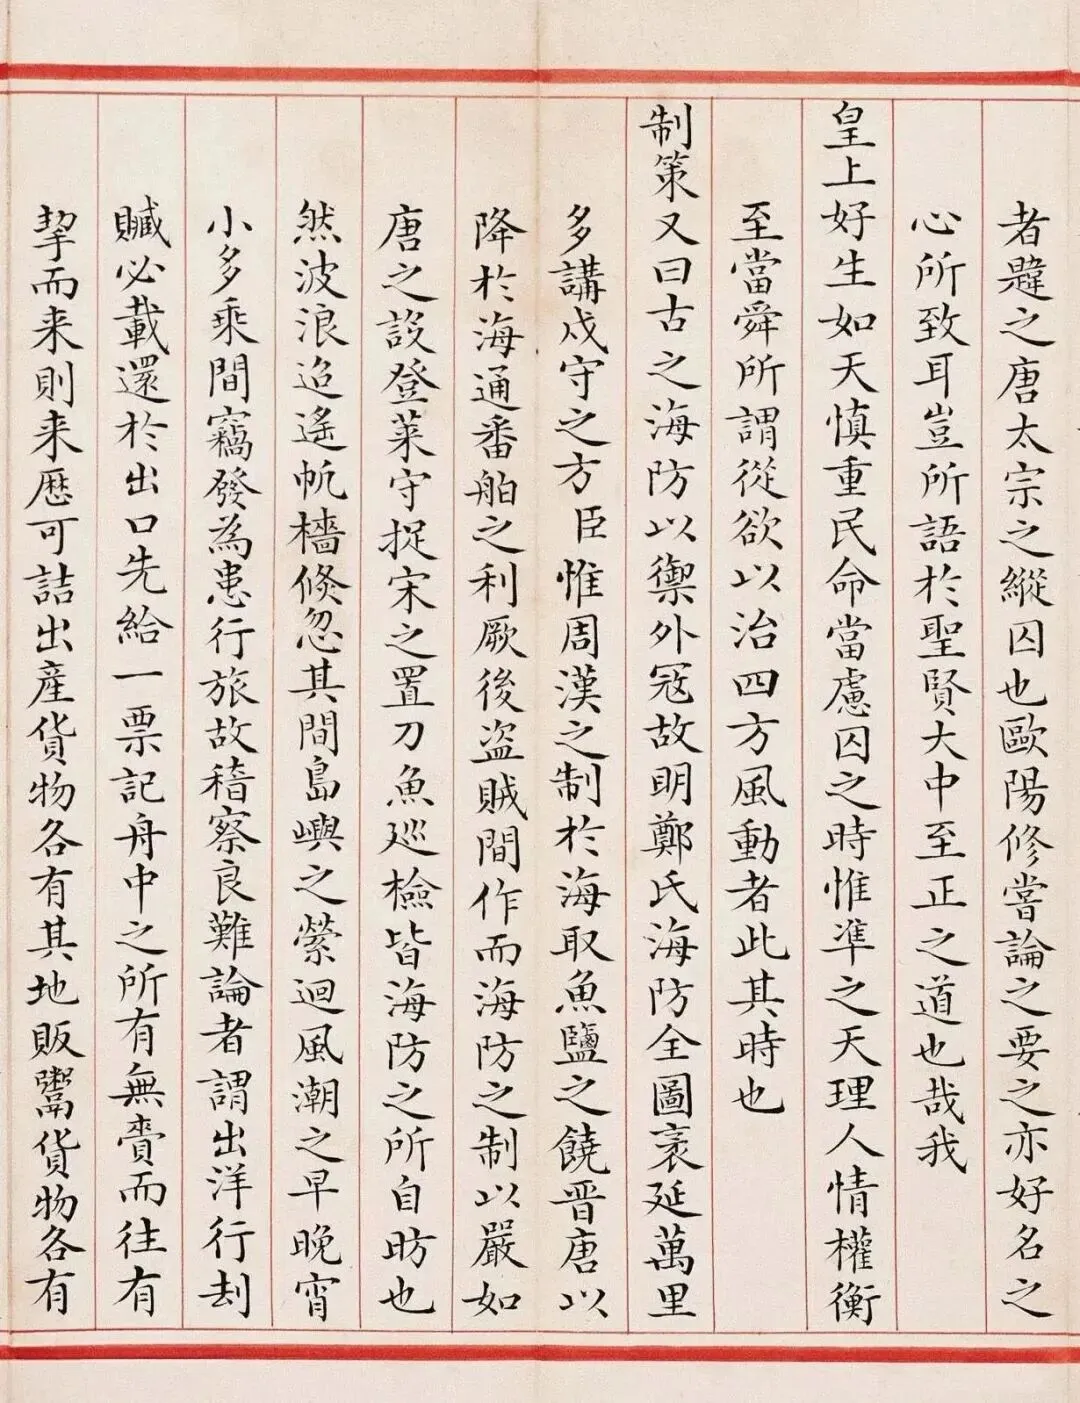 者韙之唐太宗之縱囚也歐陽修嘗論之要之亦好名之
心所致耳豈所語於聖賢大中至正之道也哉我
皇上好生如天慎重民命當慮囚之時惟準之天理人情權衡
至當舜所謂從欲以治四方風動者此其時也
制策又曰古之海防以禦外寇故明鄭氏海防全圖袤延萬里
多講戍守之方臣惟周漢之制於海取魚鹽之饒晋唐以
降於海通番舶之利厥後盗賊間作而海防之制以嚴如
唐之設登萊守捉宋之置刀魚巡檢皆海防之所自昉也
然波浪迢遙帆檣倐忽其間島嶼之縈迴風潮之早晚宵
小多乘間竊發為患行旅故稽察良難論者謂出洋行刦
贓必載還於出口先給一票記舟中之所有無賫而往有
挈而来則来歷可詰出産貨物各有其地販鬻貨物各有